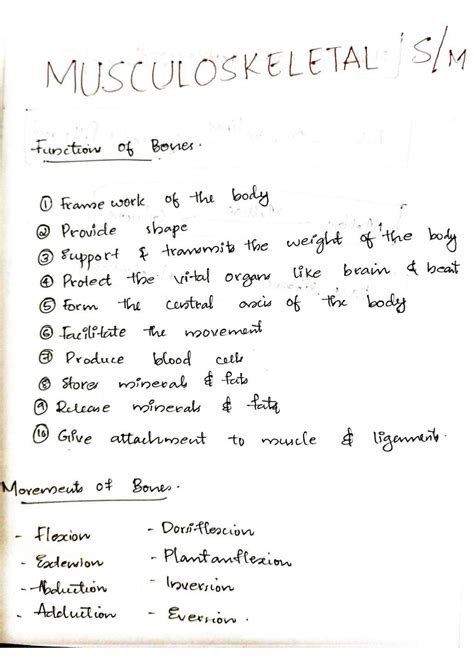 MUSCULOSKELETAL S/M
Function of Bones.
① Frame work of the body
② Provide shape
③ Support & transmits the weight of the body
④ Protect the vital organs like brain & heat
⑤ Form the central axis of the body
⑥ Facilitate the movement
⑦ Produce blood cells
⑧ Stores minerals & fats
⑨ Release minerals & fats
⑩ Give attachment to muscle & ligament.
Movements of Bones.
- Flexion - Dorsiflexion
- Extension - Plantanflexion
- Abduction - Inversion
- Adduction - Eversion.